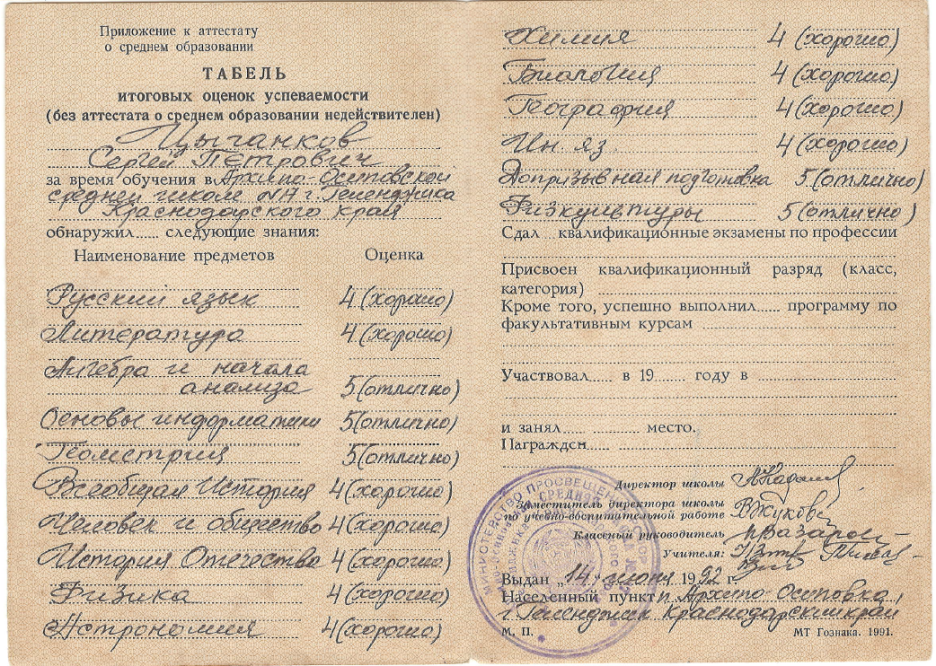 Приложение к аттестату
о среднем образовании
ТАБЕЛЬ
итоговых оценок успеваемости
(без аттестата о среднем образовании недействителен)
Цыганков
Сергей Петрович
за время обучения в Архипо-Осиповской
средней школе №17 г. Геленджика
Краснодарского края
обнаружил..... следующие знания:
Наименование предметов Оценка
Русский язык 4 (хорошо)
Литература 4 (хорошо)
Алгебра и начала
анализа 5 (отлично)
Основы информатики 5 (отлично)
Геометрия 5 (отлично)
Всеобщая История 4 (хорошо)
Человек и общество 4 (хорошо)
История Отечества 4 (хорошо)
Физика 4 (хорошо)
Астрономия 4 (хорошо)
Химия 4 (хорошо)
Биология 4 (хорошо)
География 4 (хорошо)
Ин. яз. 4 (хорошо)
Допризывная подготовка 5 (отлично)
Физкультуры 5 (отлично)
Сдал... квалификационные экзамены по профессии
Присвоен квалификационный разряд (класс,
категория)
Кроме того, успешно выполнил..... программу по
факультативным курсам
Участвовал..... в 19..... году в
и занял ........... место.
Награжден
Директор школы
Заместитель директора школы
по учебно-воспитательной работе В Жукова
Классный руководитель
Учителя:
Выдан „14" июня 1992 г.
Населенный пункт п. Архипо-Осиповка
г. Геленджик Краснодарский край
М. П. МТ Гознака. 1991.
МИНИСТЕРСТВО ПРОСВЕЩЕНИЯ
СРЕДНЯЯ